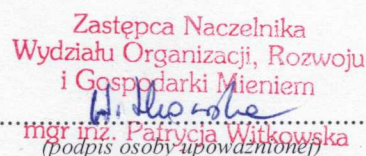 Zastępca Naczelnika
Wydziału Organizacji, Rozwoju
i Gospodarki Mieniem
Witkowska
mgr inż. Patrycja Witkowska
(podpis osoby upoważnionej)